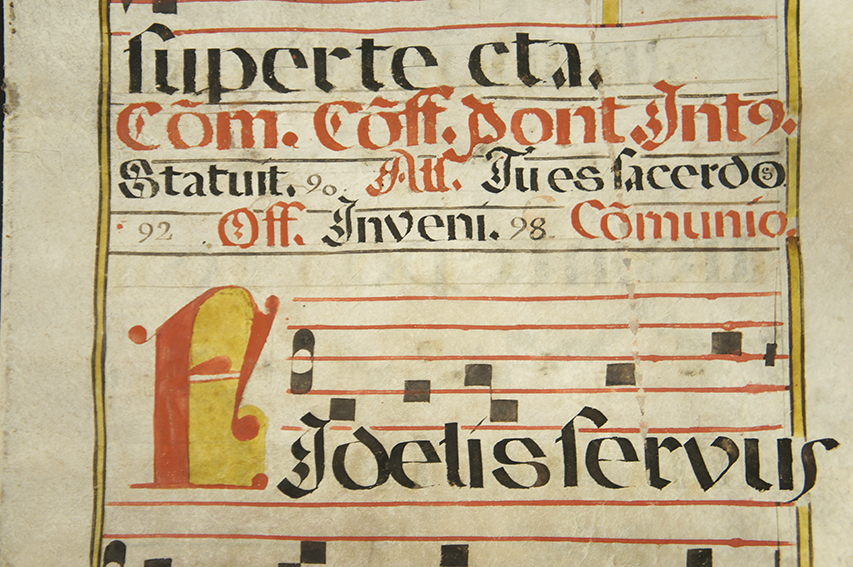 superte cta.
Cõm. Cõff. Pont. Int9.
Statuit. 90. All. Tu es sacerdos
92 Off. Inveni. 98 Cõmunio.
FIdelis servus